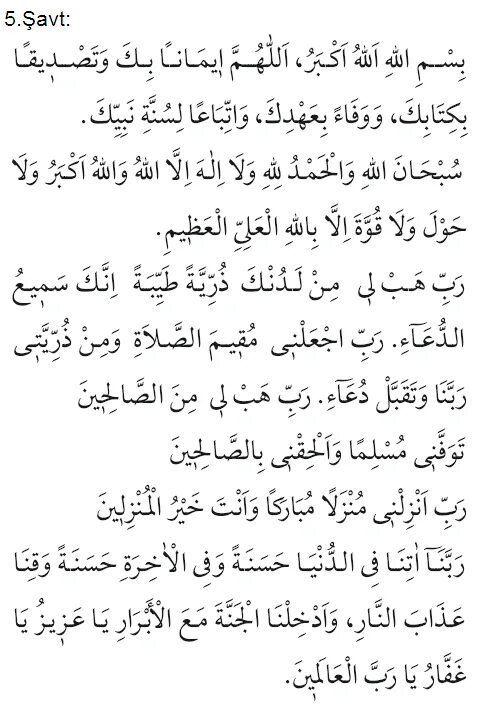 5.Şavt:
بِسْمِ اللهِ اَللهُ اَكْبَرُ، اَللّٰهُمَّ اِيمَانًا بِكَ وَتَصْدِيقًا
بِكِتَابِكَ، وَوَفَاءً بِعَهْدِكَ، وَاتِّبَاعًا لِسُنَّةِ نَبِيِّكَ.
سُبْحَانَ اللهِ وَالْحَمْدُ لِلهِ وَلَا اِلٰهَ اِلَّا اللهُ وَاللهُ اَكْبَرُ وَلَا
حَوْلَ وَلَا قُوَّةَ اِلَّا بِاللهِ الْعَلِيِّ الْعَظِيمِ.
رَبِّ هَبْ لِى مِنْ لَدُنْكَ ذُرِّيَّةً طَيِّبَةً اِنَّكَ سَمِيعُ
الدُّعَٓاءِ. رَبِّ اجْعَلْنِى مُقِيمَ الصَّلاَةِ وَمِنْ ذُرِّيَّتِى
رَبَّنَا وَتَقَبَّلْ دُعَٓاءِ. رَبِّ هَبْ لِى مِنَ الصَّالِحِينَ
تَوَفَّنِى مُسْلِمًا وَاَلْحِقْنِى بِالصَّالِحِينَ
رَبِّ اَنْزِلْنِى مُنْزَلًا مُبَارَكًا وَاَنْتَ خَيْرُ الْمُنْزِلِينَ
رَبَّنَٓا اٰتِنَا فِى الدُّنْيَا حَسَنَةً وَفِى الْاٰخِرَةِ حَسَنَةً وَقِنَا
عَذَابَ النَّارِ، وَاَدْخِلْنَا الْجَنَّةَ مَعَ الْأَبْرَارِ يَا عَزِيزُ يَا
غَفَّارُ يَا رَبَّ الْعَالَمِينَ.